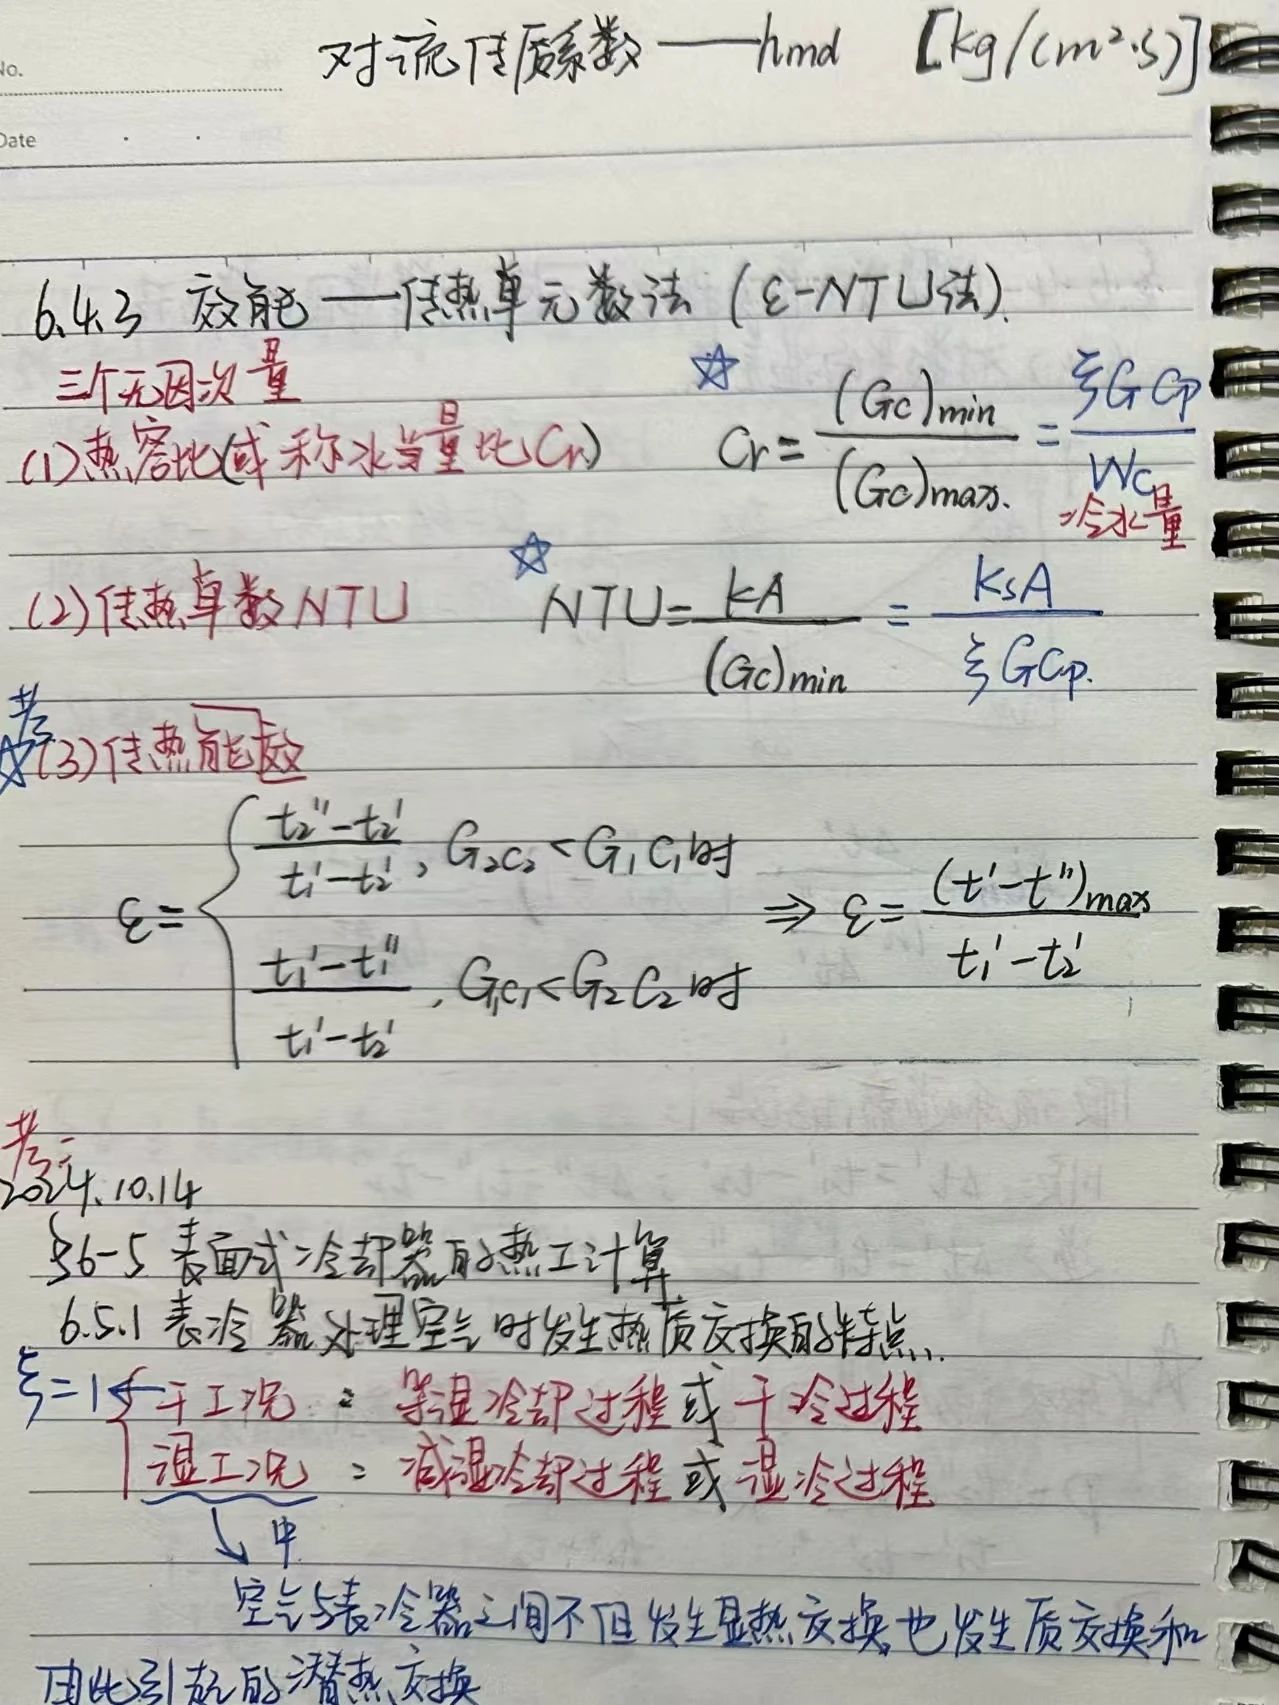 No.
对流传质系数——hmd [kg/(m²·s)]
Date
6.4.3 效能——传热单元数法 (ε-NTU法).
三个无因次量
(1)热容比(或称水当量比Cr) ☆ Cr = (Gc)min / (Gc)max. = ξGCp / Wc
=冷水量
(2)传热单数NTU ☆ NTU = kA / (Gc)min = KsA / ξGCp.
考
☆(3)传热能效
ε = { t₂''-t₂' / t₁'-t₂' , G₂c₂<G₁c₁时
t₁'-t₁'' / t₁'-t₂' , G₁c₁<G₂c₂时 ⇒ ε = (t'-t'')max / t₁'-t₂'
考
2024.10.14
§6-5 表面式冷却器的热工计算
6.5.1 表冷器处理空气时发生热质交换的特点.
ξ=1← { 干工况 : 等湿冷却过程或干冷过程
湿工况 : 减湿冷却过程或湿冷过程
↘ 中
空气与表冷器之间不但发生显热交换,也发生质交换和
由此引起的潜热交换